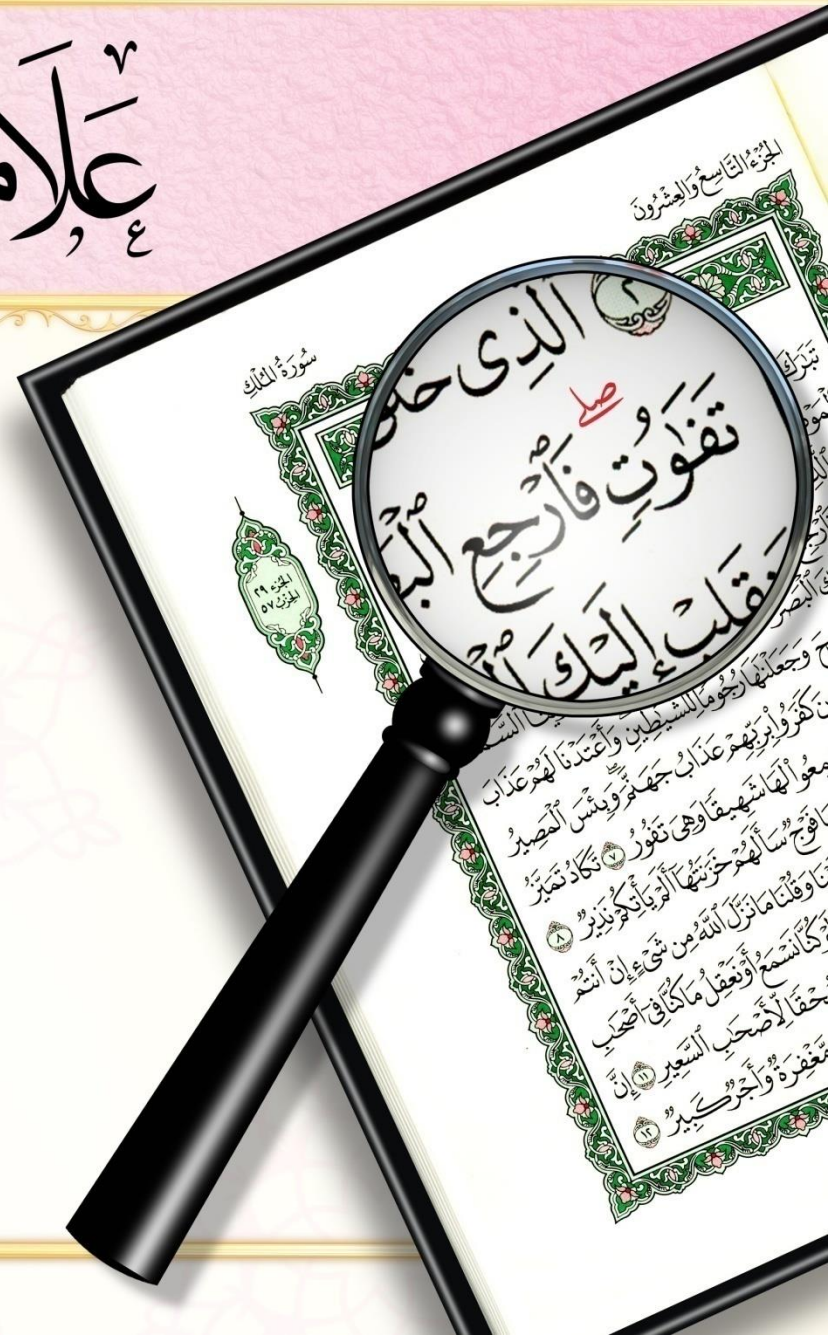 عَلَا
الجُزْءُ التَّاسِعُ وَالعِشْرُونَ
سُورَةُ المُلْكِ
٢ ٱلَّذِى خَلَ
صلے
تَفَٰوُتٍ فَٱرْجِعِ ٱلْبَ
يَنقَلِبْ إِلَيْكَ ٱلْ
الجزء ٢٩
الحزب ٥٧
تَبَٰرَكَ
وَجَعَلْنَٰهَا رُجُومًا لِّلشَّيَٰطِينِ وَأَعْتَدْنَا لَهُمْ عَذَابَ
كَفَرُوا۟ بِرَبِّهِمْ عَذَابُ جَهَنَّمَ وَبِئْسَ ٱلْمَصِيرُ
لَهَا شَهِيقًا وَهِىَ تَفُورُ ٧ تَكَادُ تَمَيَّزُ
فَوْجٌ سَأَلَهُمْ خَزَنَتُهَآ أَلَمْ يَأْتِكُمْ نَذِيرٌ ٨
وَقُلْنَا مَا نَزَّلَ ٱللَّهُ مِن شَىْءٍ إِنْ أَنتُمْ
كُنَّا نَسْمَعُ أَوْ نَعْقِلُ مَا كُنَّا فِىٓ أَصْحَٰبِ
لِّأَصْحَٰبِ ٱلسَّعِيرِ ١١ إِنَّ
مَّغْفِرَةٌ وَأَجْرٌ كَبِيرٌ ١٢